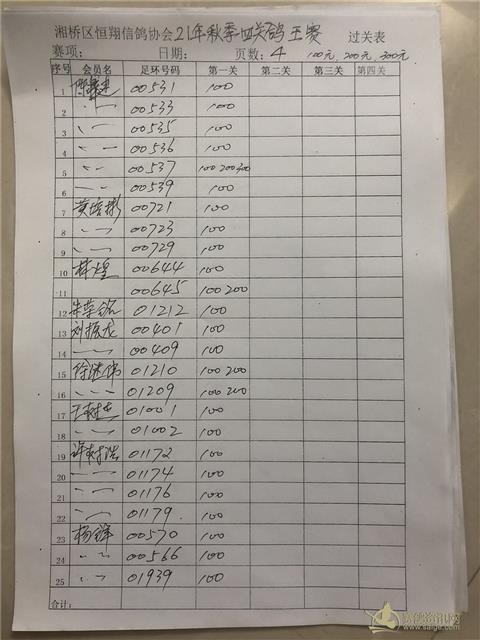 湘桥区恒翔信鸽协会21年秋季四关鸽王赛 过关表
赛项: 日期: 页数: 4 100元,200元,300元
序号 会员名 足环号码 第一关 第二关 第三关 第四关
1 00531 100
2 〃 00533 100
3 〃 00535 100
4 〃 00536 100
5 〃 00537 100 200 300
6 〃 00539 100
7 黄培彬 00721 100
8 〃 00723 100
9 〃 00729 100
10 林煌 00644 100
11 00645 100 200
12 朱荣铭 01212 100
13 刘振龙 00401 100
14 〃 00409 100
15 徐继伟 01210 100 200
16 〃 01209 100 200
17 王树杰 01001 100
18 〃 01002 100
19 许树浩 01172 100
20 〃 01174 100
21 〃 01176 100
22 〃 01179 100
23 杨锋 00570 100
24 〃 00566 100
25 〃 01939 100
合计: